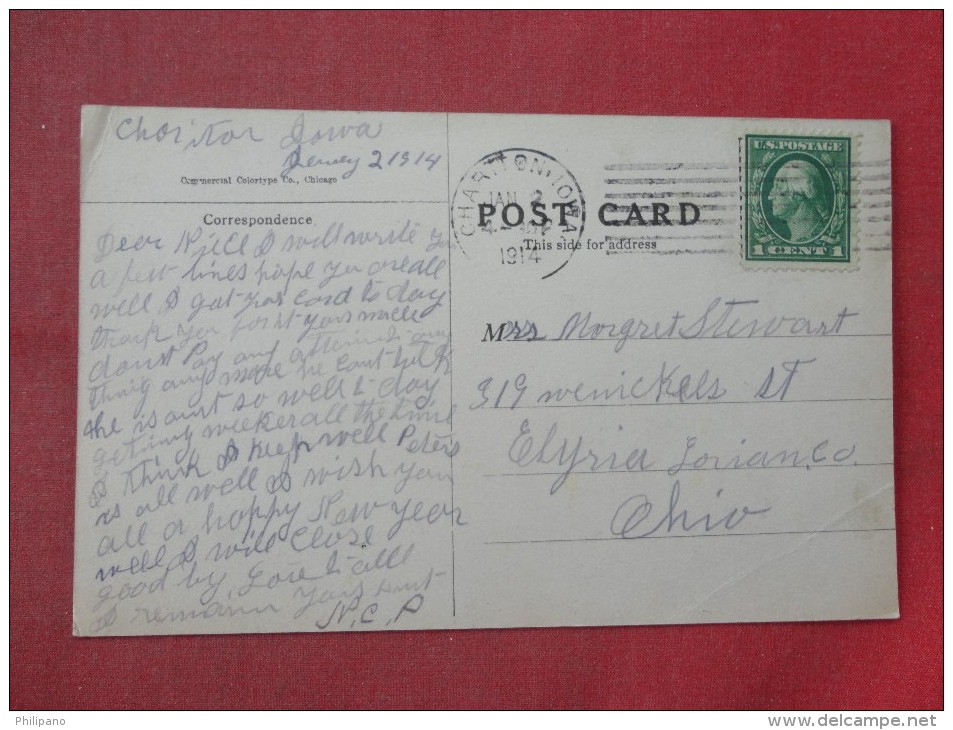 Choitor Iowa
Jenuey 2 1914
Commercial Colortype Co., Chicago
Correspondence
Dear Niece I will write you
a few lines hope you are all
well I got your card to day
thank you
dount Pay any any
thing any more he cant help
she is aunt so well to day
geting weeker all the time
I think I keep well Peters
is all well I wish you
all a hoppy New year
well I will close
good by. Love to all
I remain yours aunt
N.C.P
CHARITON IOWA
JAN 2
1914
POST CARD
This side for address
U.S. POSTAGE
1 CENT 1
Mrs Morgret Stewart
319 wenickels St
Elyria Lorian. Co.
Ohio
Philipano
www.delcampe.net